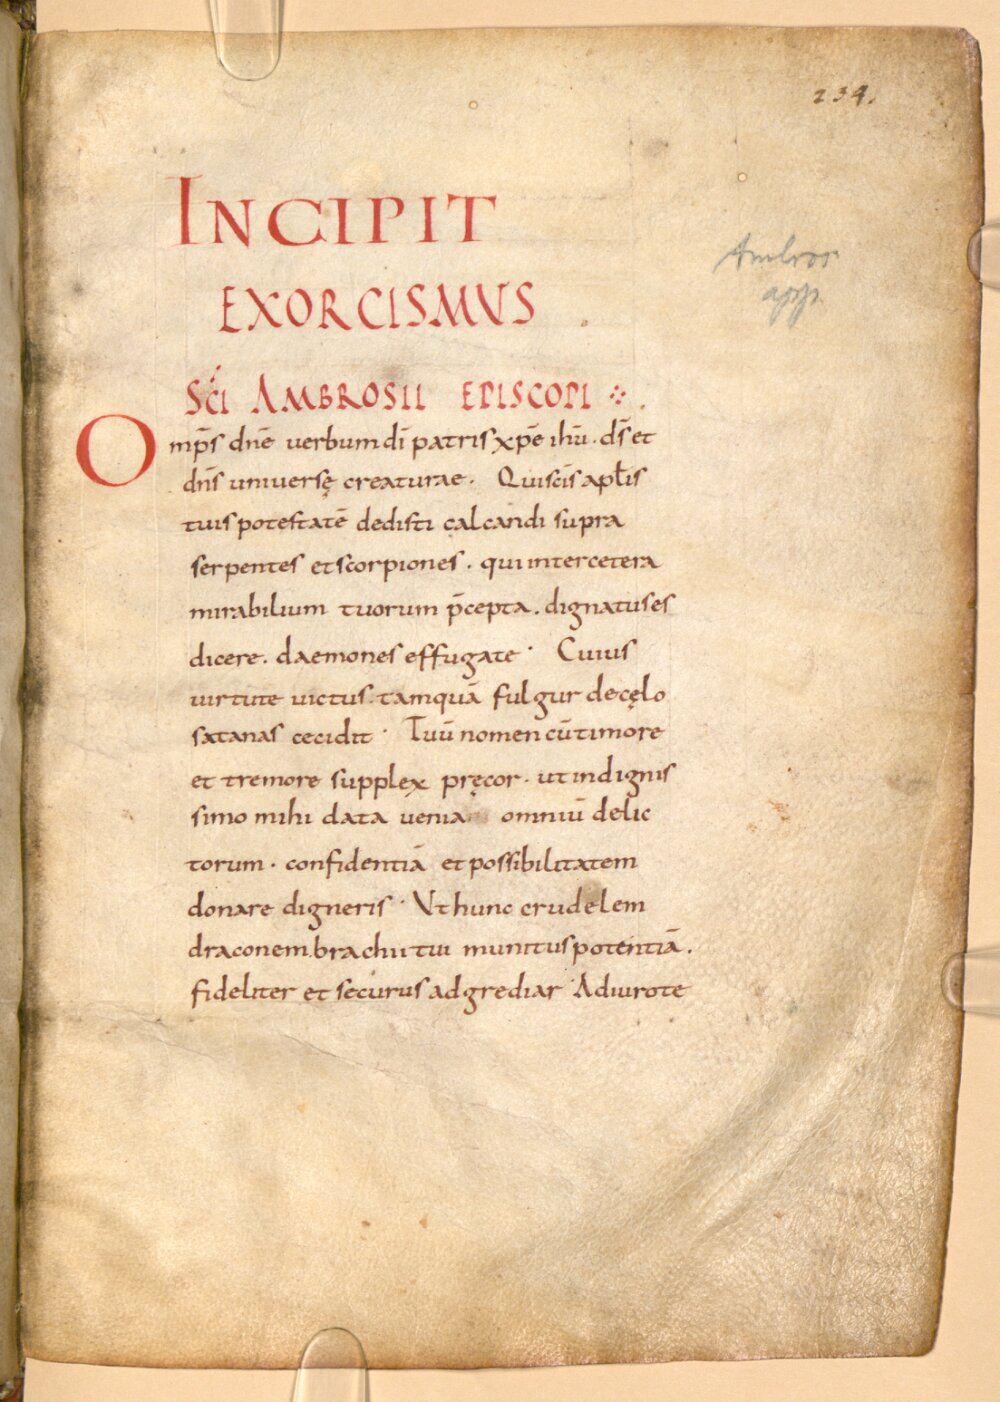 234.
INCIPIT
EXORCISMVS
Sc̄i AMBROSII EPISCOPI
Omp̄s dn̄e uerbum dī patris xp̄e ihū. ds̄ et
dn̄s uniuersę creaturae. Qui sc̄is apl̄is
tuis potestatē dedisti calcandi supra
serpentes et scorpiones. qui inter cetera
mirabilium tuorum p̄cepta. dignatus es
dicere. daemones effugate · Cuius
uirtute uictus. tamquā fulgur de cęlo
satanas cecidit · Tuū nomen cū timore
et tremore supplex pręcor. ut indignis
simo mihi data uenia omniū delic
torum. confidentiā et possibilitatem
donare digneris · Vt hunc crudelem
draconem. brachii tui munitus potentiā.
fideliter et securus adgrediar · Adiuro te
Ambros
app.